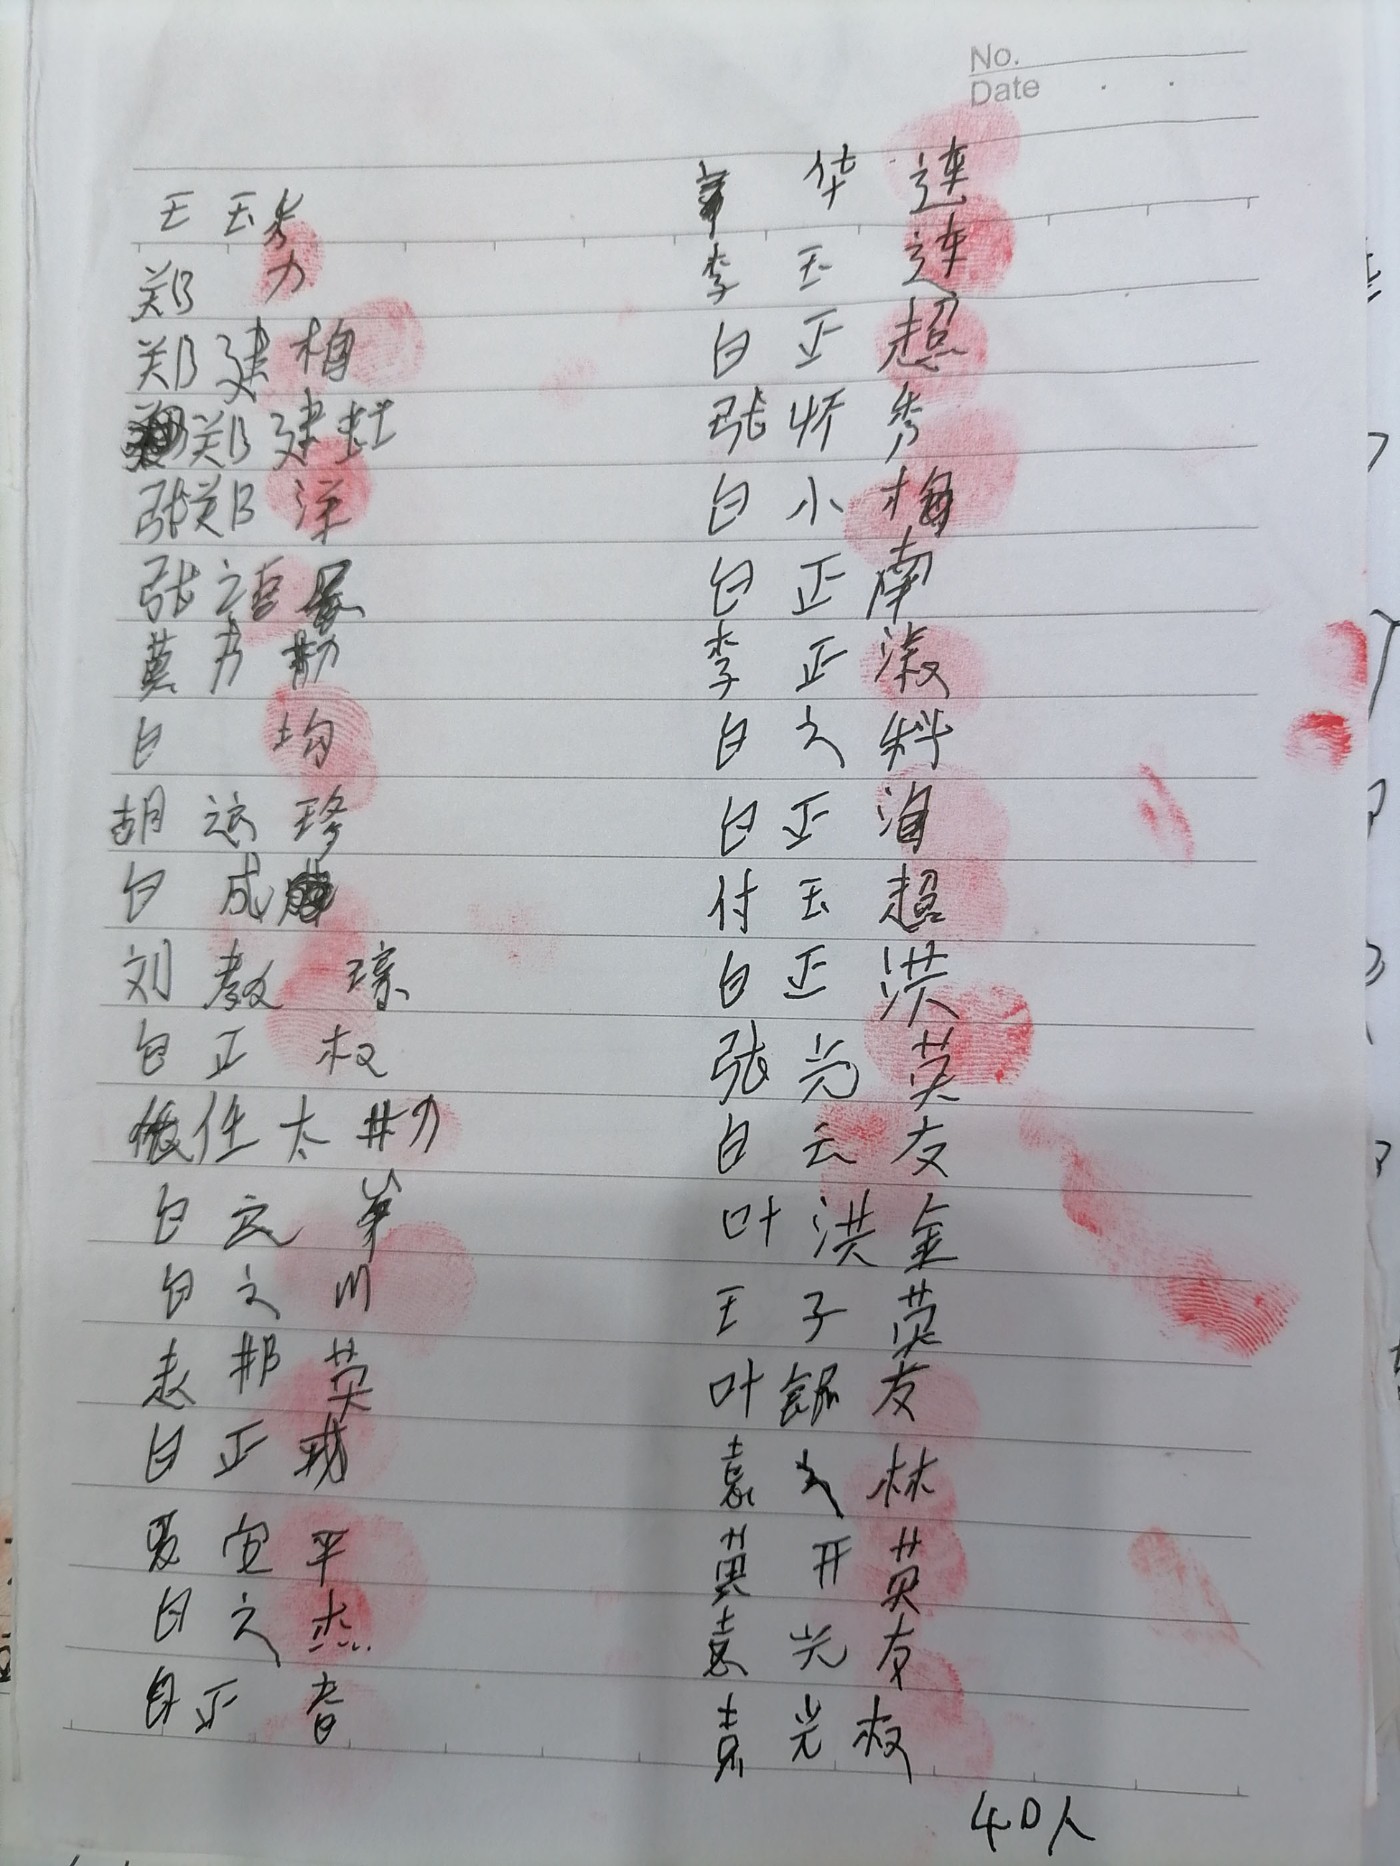 No.
Date
王玉秀
郑 力
郑建梅
郑建虹
张郑洋
张
莫
白 均
胡 珍
白成
刘 琼
白正权
任太
白 川
赵邦英
白正
平
白文杰
白正春
华连
李玉连
白正超
张 秀
白小梅
白正南
李正淑
白文科
白正海
付玉超
白正洪
张光英
白云友
叶洪金
王子英
叶 友
袁文林
黄开英
袁光友
袁光权
40人